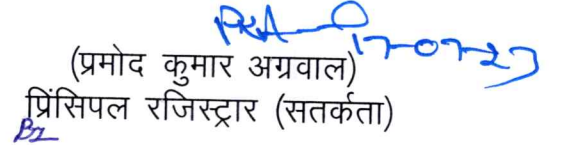 17-07-23
(प्रमोद कुमार अग्रवाल)
प्रिंसिपल रजिस्ट्रार (सतर्कता)